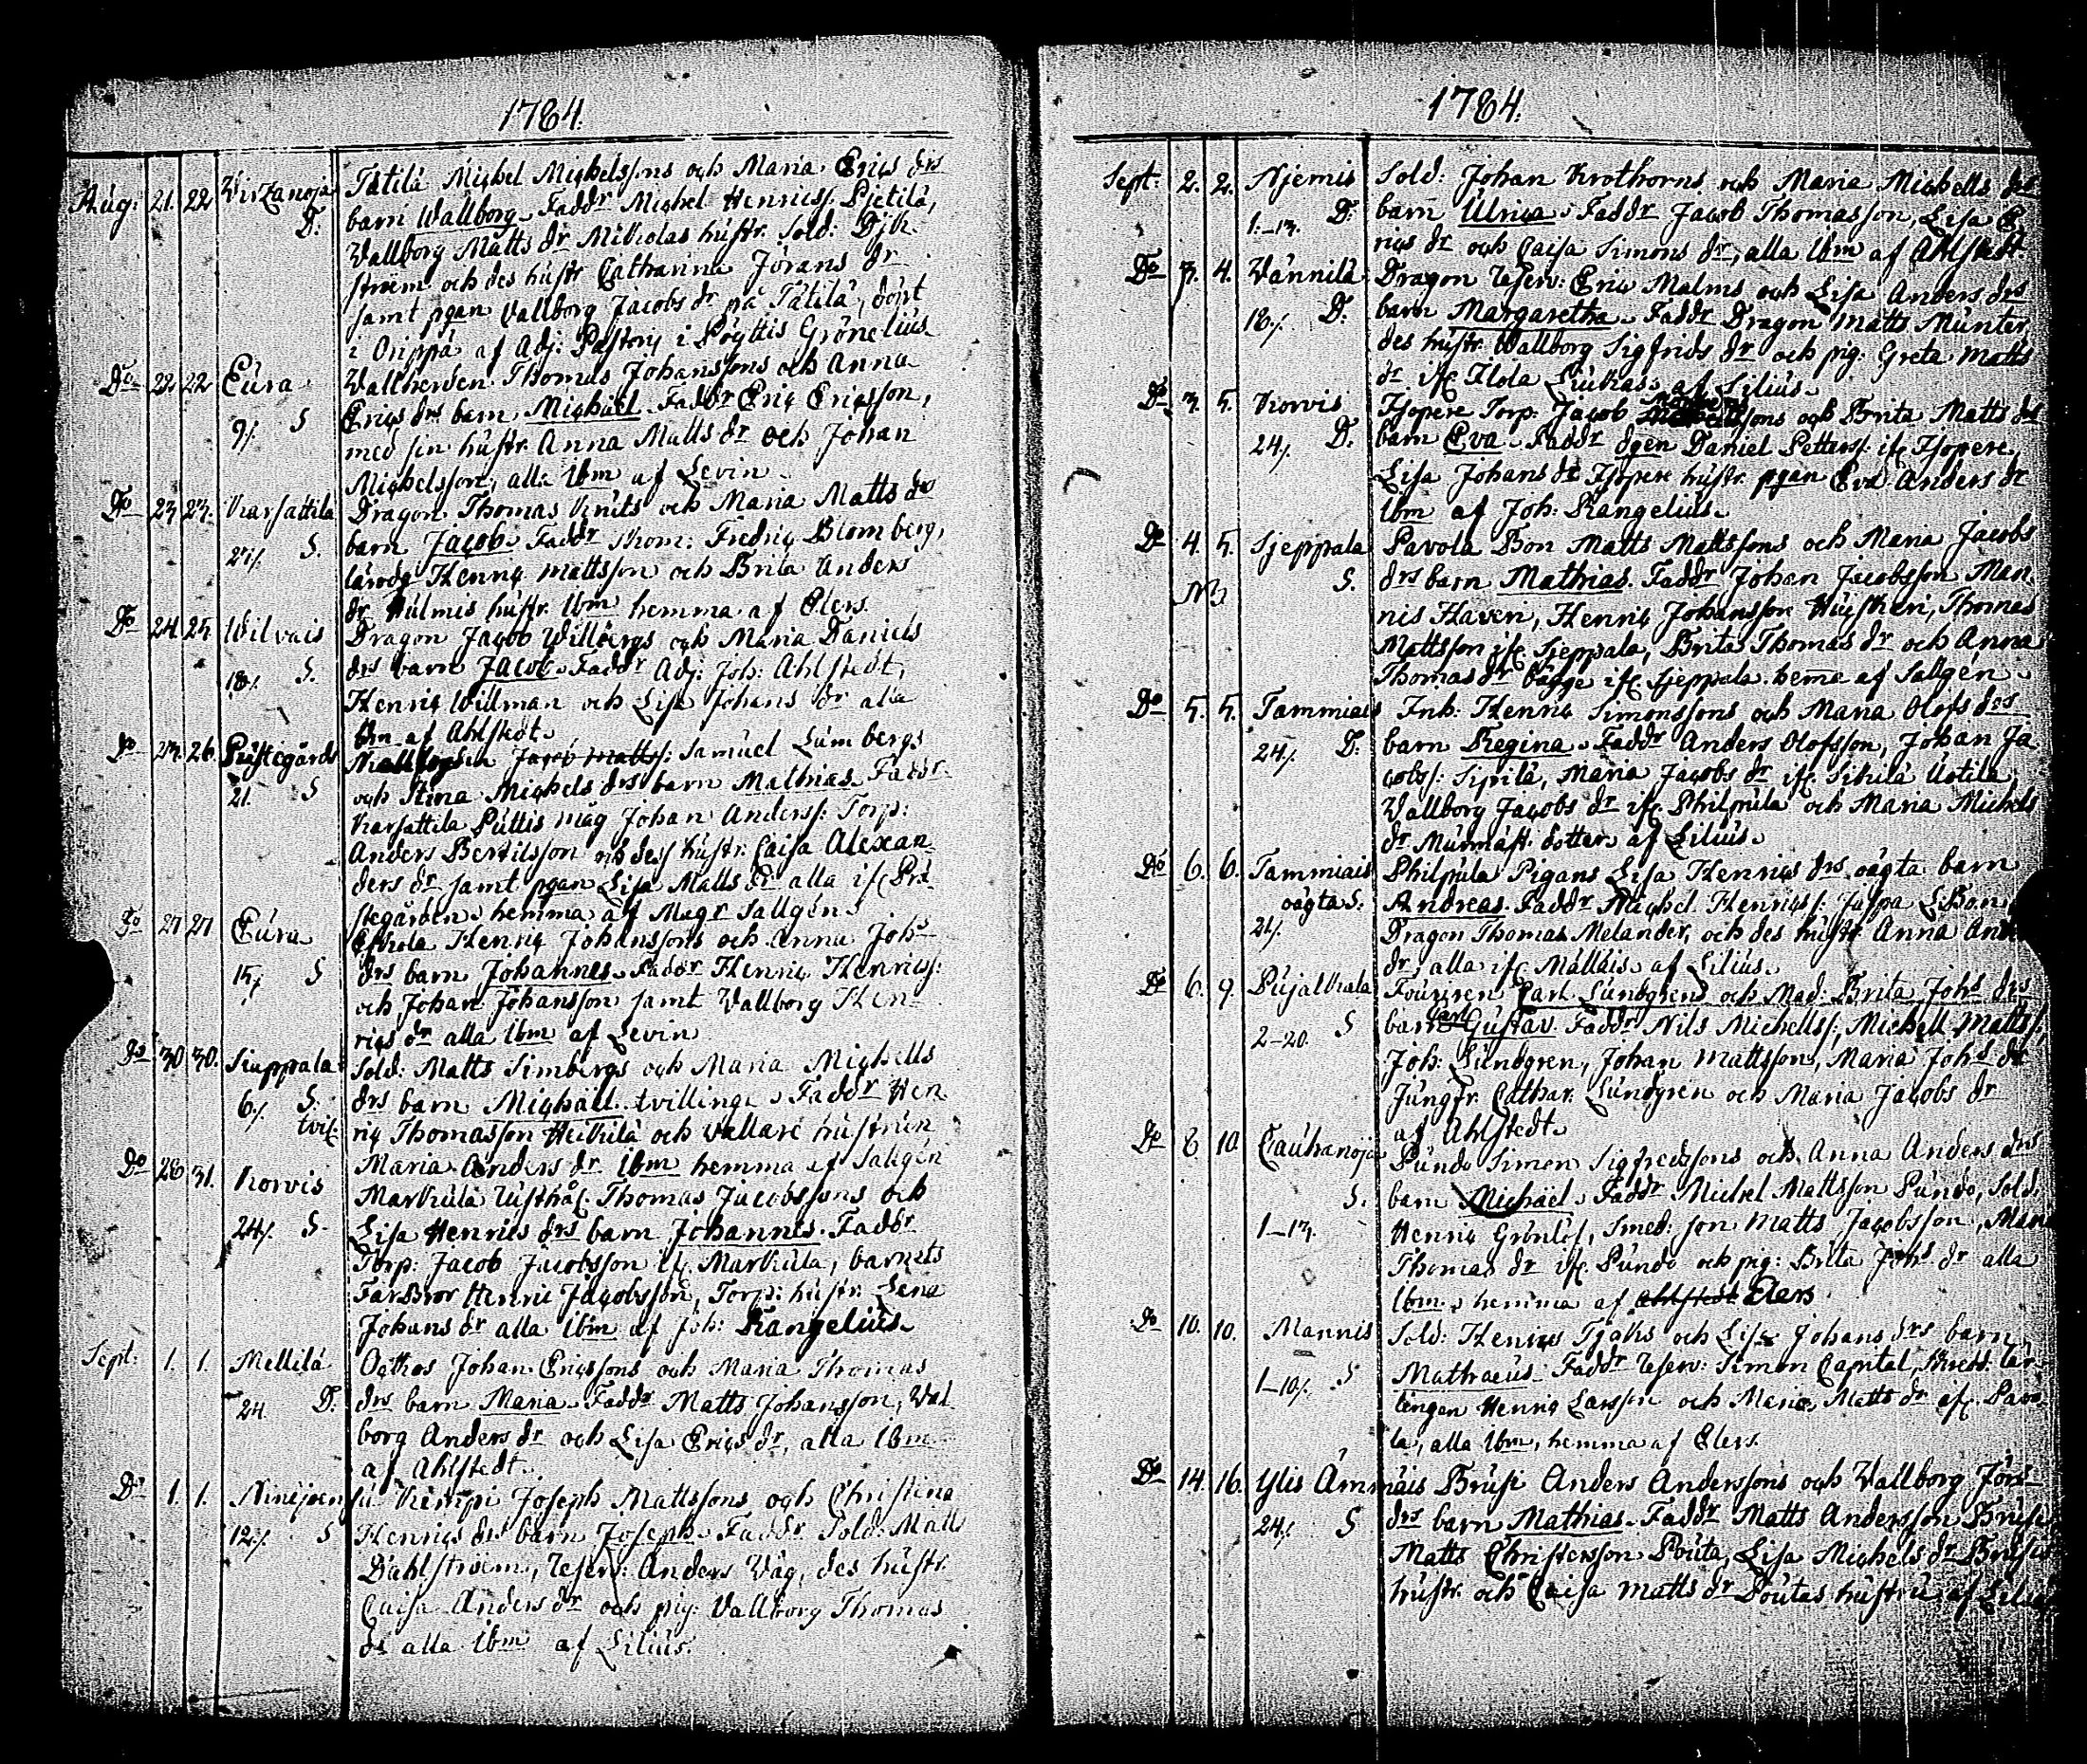 1784.
Aug: 21. 22 Virzanoja Tätilä Michel Michelssons och Maria Erics drs
D. barn Wallborg. Faddr Michel Henricss. Pietilä,
Wallborg Matts dr Mikolas hustr. Sold: Djk-
ström och des hustr Catharina Jörans dr
samt pgan Vallborg Jacobs dr på Tätilä, döpt
i Orippä af Adj: Pastoris i Pöyttis Grönelius
Do 22 22 Eura Wallherden Thomas Johanssons och Anna
9/. S Erics drs barn Michaël. Faddr Eric Ericsson,
med sin hustr. Anna Matts dr och Johan
Michelsson, alla ibm af Levin.
Do 23 23. Karsattila Dragon Thomas Knuts och Maria Matts drs
27/. S. barn Jacob. Faddr Skom: Fredric Blomberg,
Henric Mattsson och Brita Anders
dr Hulmis hustr. ibm hemma af Elers.
Do 24. 25. Wilvais Dragon Jacob Willbergs och Maria Daniels
18/. S. drs barn Jacob. Faddr Adj: Joh: Ahlstedt,
Henric Willman och Lisa Johans dr alla
ibm af Ahlstedt.
Do 23. 26. Prästegårds Jacob Matts: Samuel Lumbergs
21. S och Stina Michels drs barn Mathias. Faddr
Karsattila Puttis måg Johan Anderss: Torp:
Anders Bertilsson och dess hustr. Caisa Alexan-
ders dr samt pgan Lisa Matts dr alla ifr Prä-
stegården, hemma af Magr Sallgén.
Do 27 27 Eura Henric Johanssons och Anna Johs
15/. S drs barn Johannes. Faddr Henric Henricss:
och Johan Johansson samt Vallborg Hen-
rics dr alla ibm af Levin
Do 30 30. Sieppala Sold: Matts Simbergs och Maria Michells
6/. S. drs barn Michaël. tvilling. Faddr Hen-
tvil: ric Thomasson Heikilä och vallare hustrun
Maria Anders dr ibm hemma af Sallgén
Do 28 31. Korvis Markula Rusthål: Thomas Jacobssons och
24/. S. Lisa Henrics drs barn Johannes. Faddr
Torp: Jacob Jacobsson ifr Markula, barnets
FarBror Henric Jacobsson, Torp: hustr. Lena
Johans dr alla ibm af Joh: Rangelius.
Sept: 1. 1. Mellilä Johan Ericssons och Maria Thomas
24. D. drs barn Maria. Faddr Matts Johansson, Wal-
borg Anders dr och Lisa Erics dr, alla ibm
af Ahlstedt.
Do 1. 1. Ninijoensu Kemppi Joseph Mattssons och Christina
12/. S Henrics drs barn Joseph. Faddr Sold: Matts
Dahlström, Reserv: Anders Våg, des hustr.
Caisa Anders dr och pig: Vallborg Thomas
dr alla ibm af Lilius.
1784.
Sept: 2. 2. Njemis Sold: Johan Krothorns och Maria Michells drs
1.-13. D: barn Ulrica. Faddr Jacob Thomasson, Lisa E-
rics dr och Caisa Simons dr, alla ibm af Ahlstedt.
Do 3. 4. Vännilä Dragon Reserv: Eric Malms och Lisa Anders drs
18/. D: barn Margaretha. Faddr Dragon Matts Munter,
des hustr. Wallborg Sigfrids dr och pig: Greta Matts
dr ifr Ilola Liukas. af Lilius.
Do 3. 5. Korvis Isopere Torp: Jacob sons och Brita Matts drs
24/. D. barn Eva. Faddr dgen Daniel Petterss: ifr Isopere,
Lisa Johans dr Isopere hustr. pgan Eva Anders dr
ibm af Joh: Rangelius.
Do 4. 5. Sjeppala Pavola Bon Matts Mattssons och Maria Jacobs
S. drs barn Mathias. Faddr Johan Jacobsson Man-
nis Haven, Henric Johansson Thomas
Mattsson ifr Sjeppala, Brita Thomas dr och Anna
Thomas dr bägge ifr Sjeppala. heme af Sallgén.
Do 5. 5. Tammiais Inh: Henric Simonssons och Maria Olofs drs
24/. D: barn Regina. Faddr Anders Olofsson, Johan Ja-
cobss: Sipilä, Maria Jacobs dr ifr Sikilä Uotila,
Wallborg Jacobs dr ifr Philpula och Maria Michels
dr Murmäst. dotter af Lilius.
Do 6. 6. Tammiais Philpula Pigans Lisa Henrics drs oägta barn
oägta S: Andreas. Faddr Michel Henricss: Jaspa
21/. Dragon Thomas Melander, och des hustr Anna
dr, alla ifr Mälläis. af Lilius.
Do 6. 9. Pujalkala Fouriren Carl Lundgrens och Mad: Brita Johs drs
2-20. S barn Carl Gustav. Faddr Nils Michellss:, Michell Mattss:,
Joh: Lundgren, Johan Mattsson, Maria Johs dr
Jungfr. Cathar. Lundgren och Maria Jacobs dr
af Ahlstedt.
Do 8 10 Cauhanoja Pundo Simon Sigfredssons och Anna Anders drs
S. barn Michaël. Faddr Michel Mattsson Pundo, Sold.
1-13. Henric Grönlöf, Smed: son Matts Jacobsson,
Thomas dr ifr Pundo och pig: Brita Johs dr alla
ibm, hemma af Ahlstedt Elers.
Do 10. 10. Mannis Sold: Henrics Tjäks och Lisa Johans drs barn
1-10/. S Mathaeus. Faddr Reserv: Simon Capital, Skredd: lär-
lingen Henric Larsson och Maria Matts dr ifr Pavo-
la, alla ibm, hemma af Elers.
Do 14. 16. Ylis Ämmäis Brusi Anders Anderssons och Vallborg Jörs
24/. S drs barn Mathias. Faddr Matts Andersson Brusi,
Matts Christersson Pouta, Lisa Michels dr Brusi
hustr. och Caisa Matts dr Poutas hustru af Lilius